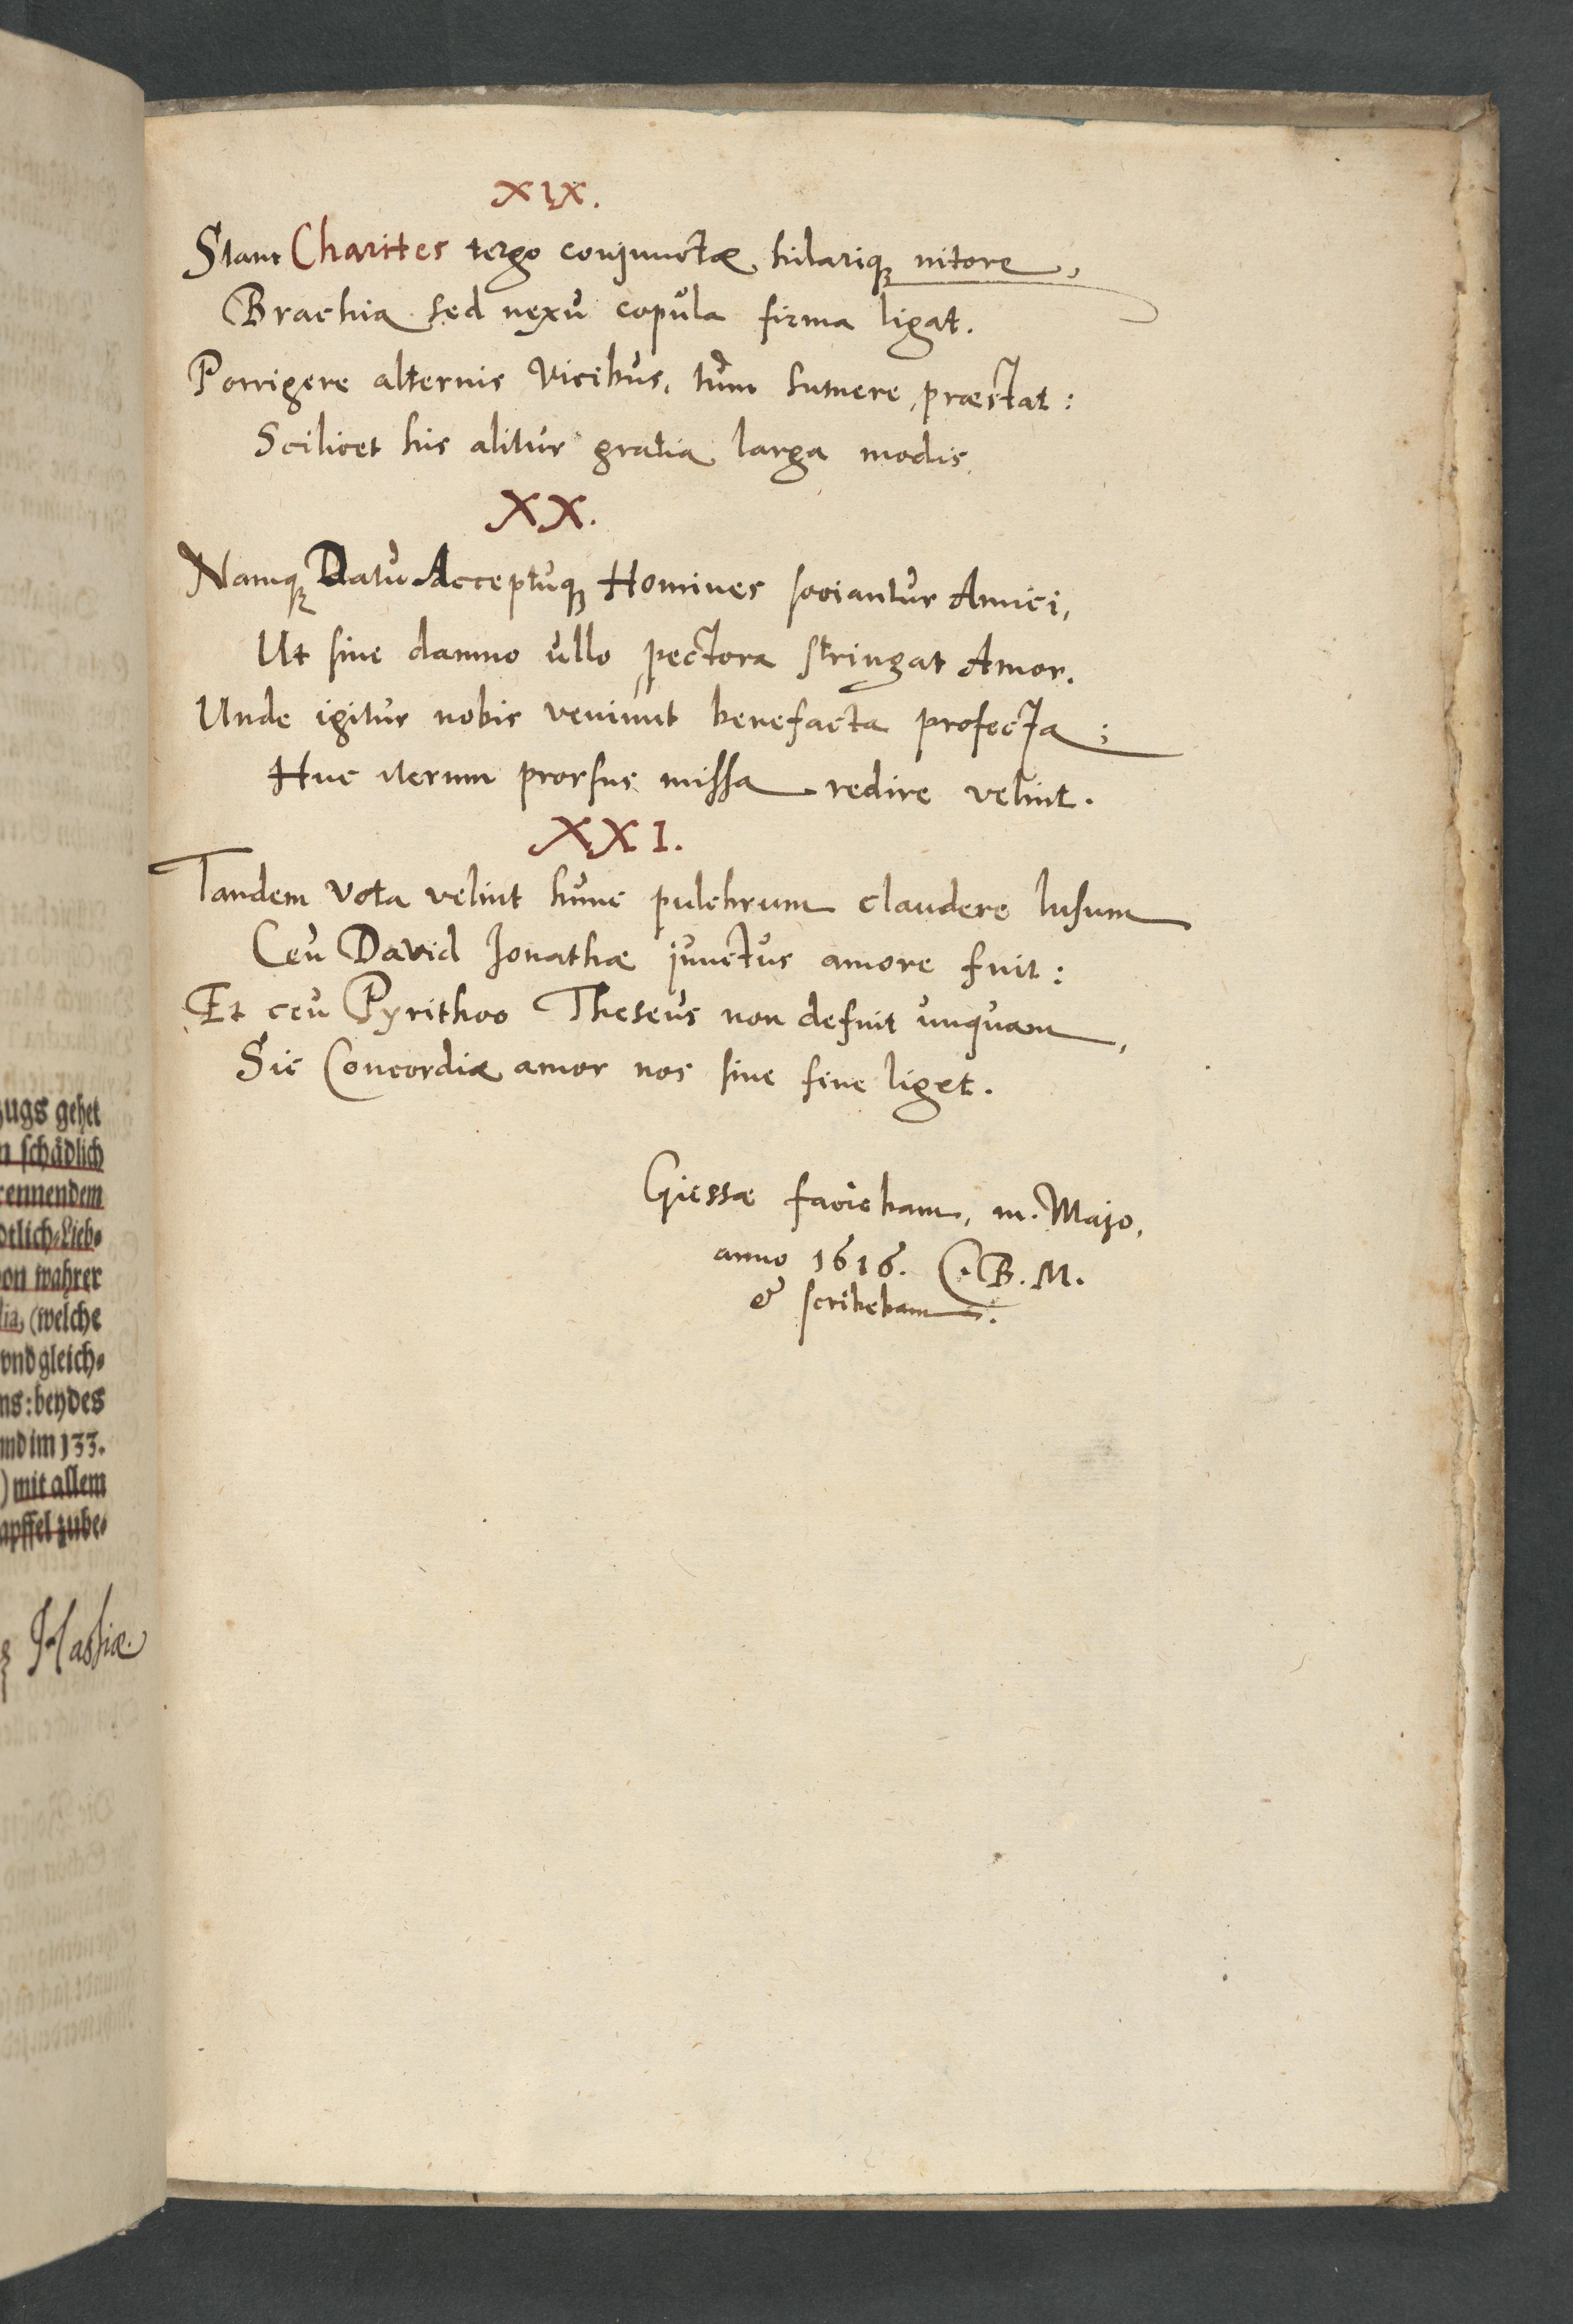 XIX.
Stant Charites tergo conjunctæ hilarique nitore,
Brachia sed nexu copula firma ligat.
Porrigere alternis vicibus, tum sumere præstat:
Scilicet his alitur gratia larga modis.
XX.
Namque Datu Acceptuque Homines sociantur Amici,
Ut sine damno ullo pectora stringat Amor.
Unde igitur nobis veniunt benefacta profecta;
Huc iterum prorsus missa redire velint.
XXI.
Tandem vota velint hunc pulchrum claudere lusum
Ceu David Jonathæ junctus amore fuit:
Et ceu Pyrithoo Theseus non defuit unquam,
Sic Concordiæ amor nos sine fine liget.
Giessæ faciebam, m. Majo,
anno 1616. C. B. M.
& scribebam.
gehet
schädlich
Lieb-
wahrer
(welche
vnd gleich-
beydes
im 133.
mit allem
Hassiæ.